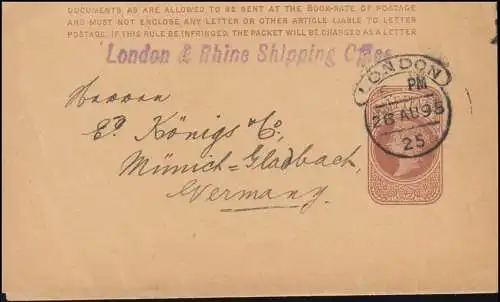 DOCUMENTS, AS ARE ALLOWED TO BE SENT AT THE BOOK-RATE OF POSTAGE
AND MUST NOT ENCLOSE ANY LETTER OR OTHER ARTICLE LIABLE TO LETTER
POSTAGE. IF THIS RULE BE INFRINGED, THE PACKET WILL BE CHARGED AS A LETTER
London & Rhine Shipping Coies
LONDON
PM
26 AU 95
25
Herren
Ed Königs & Co,
Münich-Gladbach,
Germany.